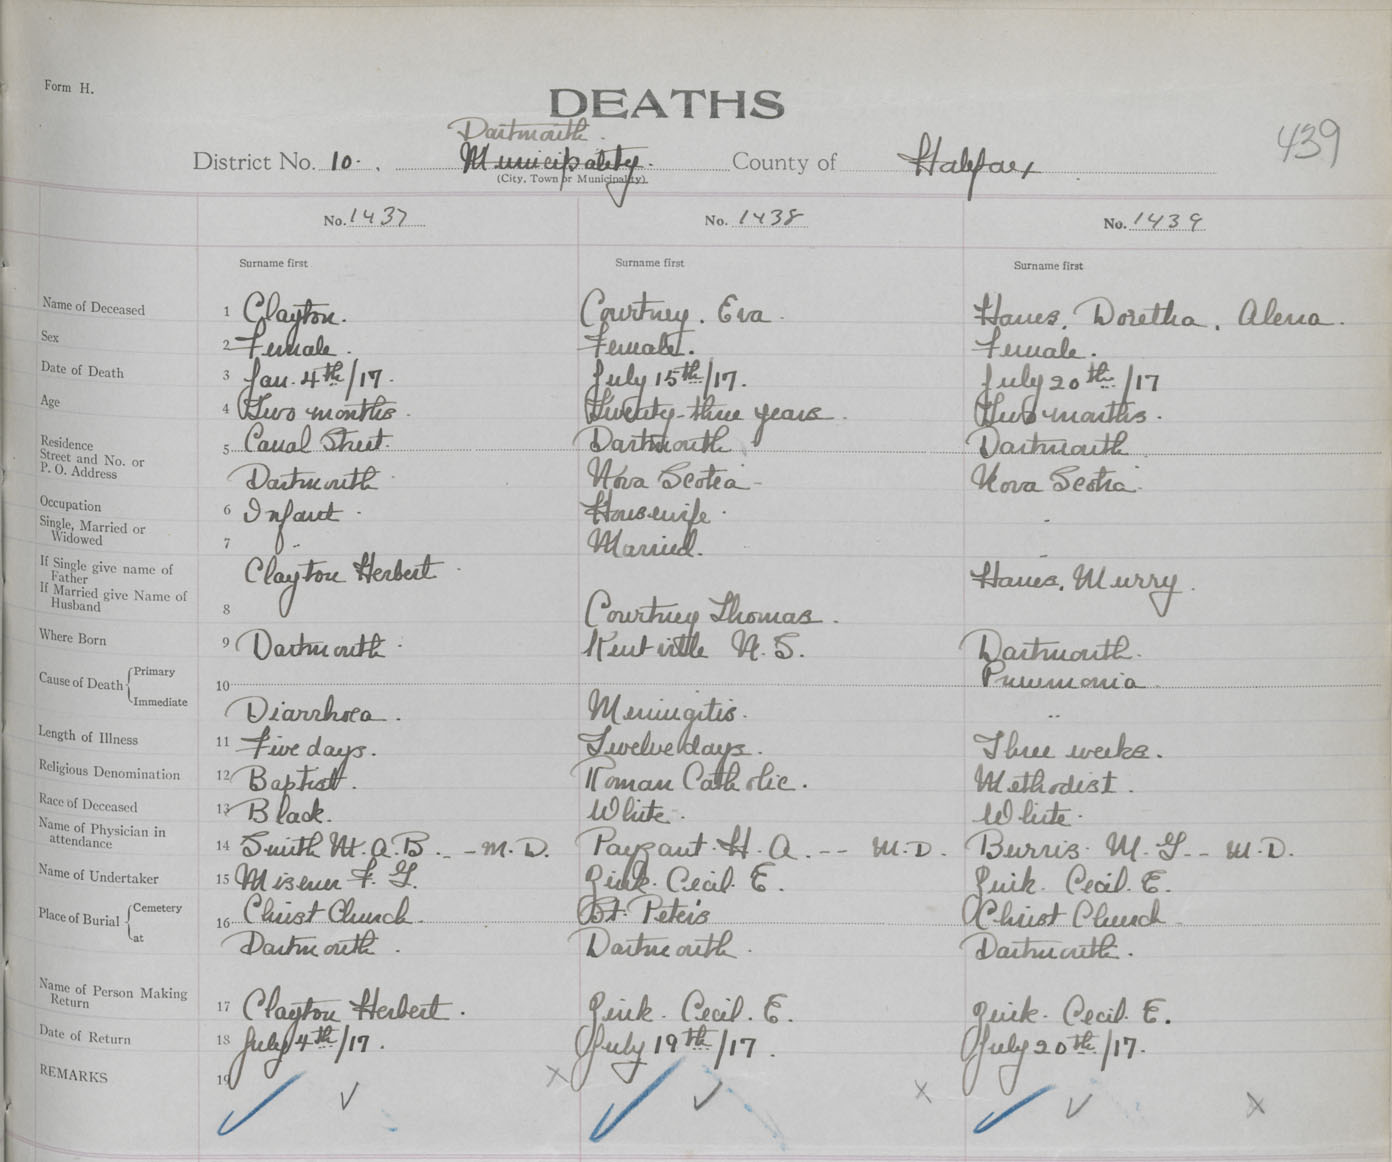 Form H.
DEATHS
439
Dartmouth
District No. 10. Municipality. County of Halifax
(City, Town or Municipality)
No. 1437 No. 1438 No. 1439
Surname first Surname first Surname first
Name of Deceased 1 Clayton. Courtney, Eva. Hawes, Doretha, Alena.
Sex 2 Female. Female. Female.
Date of Death 3 Jan. 4th/17. July 15th/17. July 20th/17
Age 4 Two months. Twenty-three years. Two months.
Residence Street and No. or P. O. Address 5 Canal Street. Dartmouth Dartmouth
Dartmouth Nova Scotia Nova Scotia
Occupation 6 Infant. Housewife.
Single, Married or Widowed 7 " Married.
If Single give name of Father Clayton Herbert Hawes, Murry.
If Married give Name of Husband 8 Courtney Thomas.
Where Born 9 Dartmouth Kentville N.S. Dartmouth.
Cause of Death { Primary 10 Pneumonia
Immediate Diarrhoea. Meningitis. "
Length of Illness 11 Five days. Twelve days. Three weeks.
Religious Denomination 12 Baptist. Roman Catholic. Methodist.
Race of Deceased 13 Black. White. White.
Name of Physician in attendance 14 Smith W.A.B. -- M.D. Payzant. H.A. -- M.D. Burris. M.G. -- M.D.
Name of Undertaker 15 Misener F.G. Zink. Cecil. E. Zink. Cecil. E.
Place of Burial { Cemetery 16 Christ Church St. Peter's Christ Church
at Dartmouth. Dartmouth. Dartmouth.
Name of Person Making Return 17 Clayton Herbert. Zink. Cecil. E. Zink. Cecil. E.
Date of Return 18 July 4th/17. July 19th/17. July 20th/17.
REMARKS 19